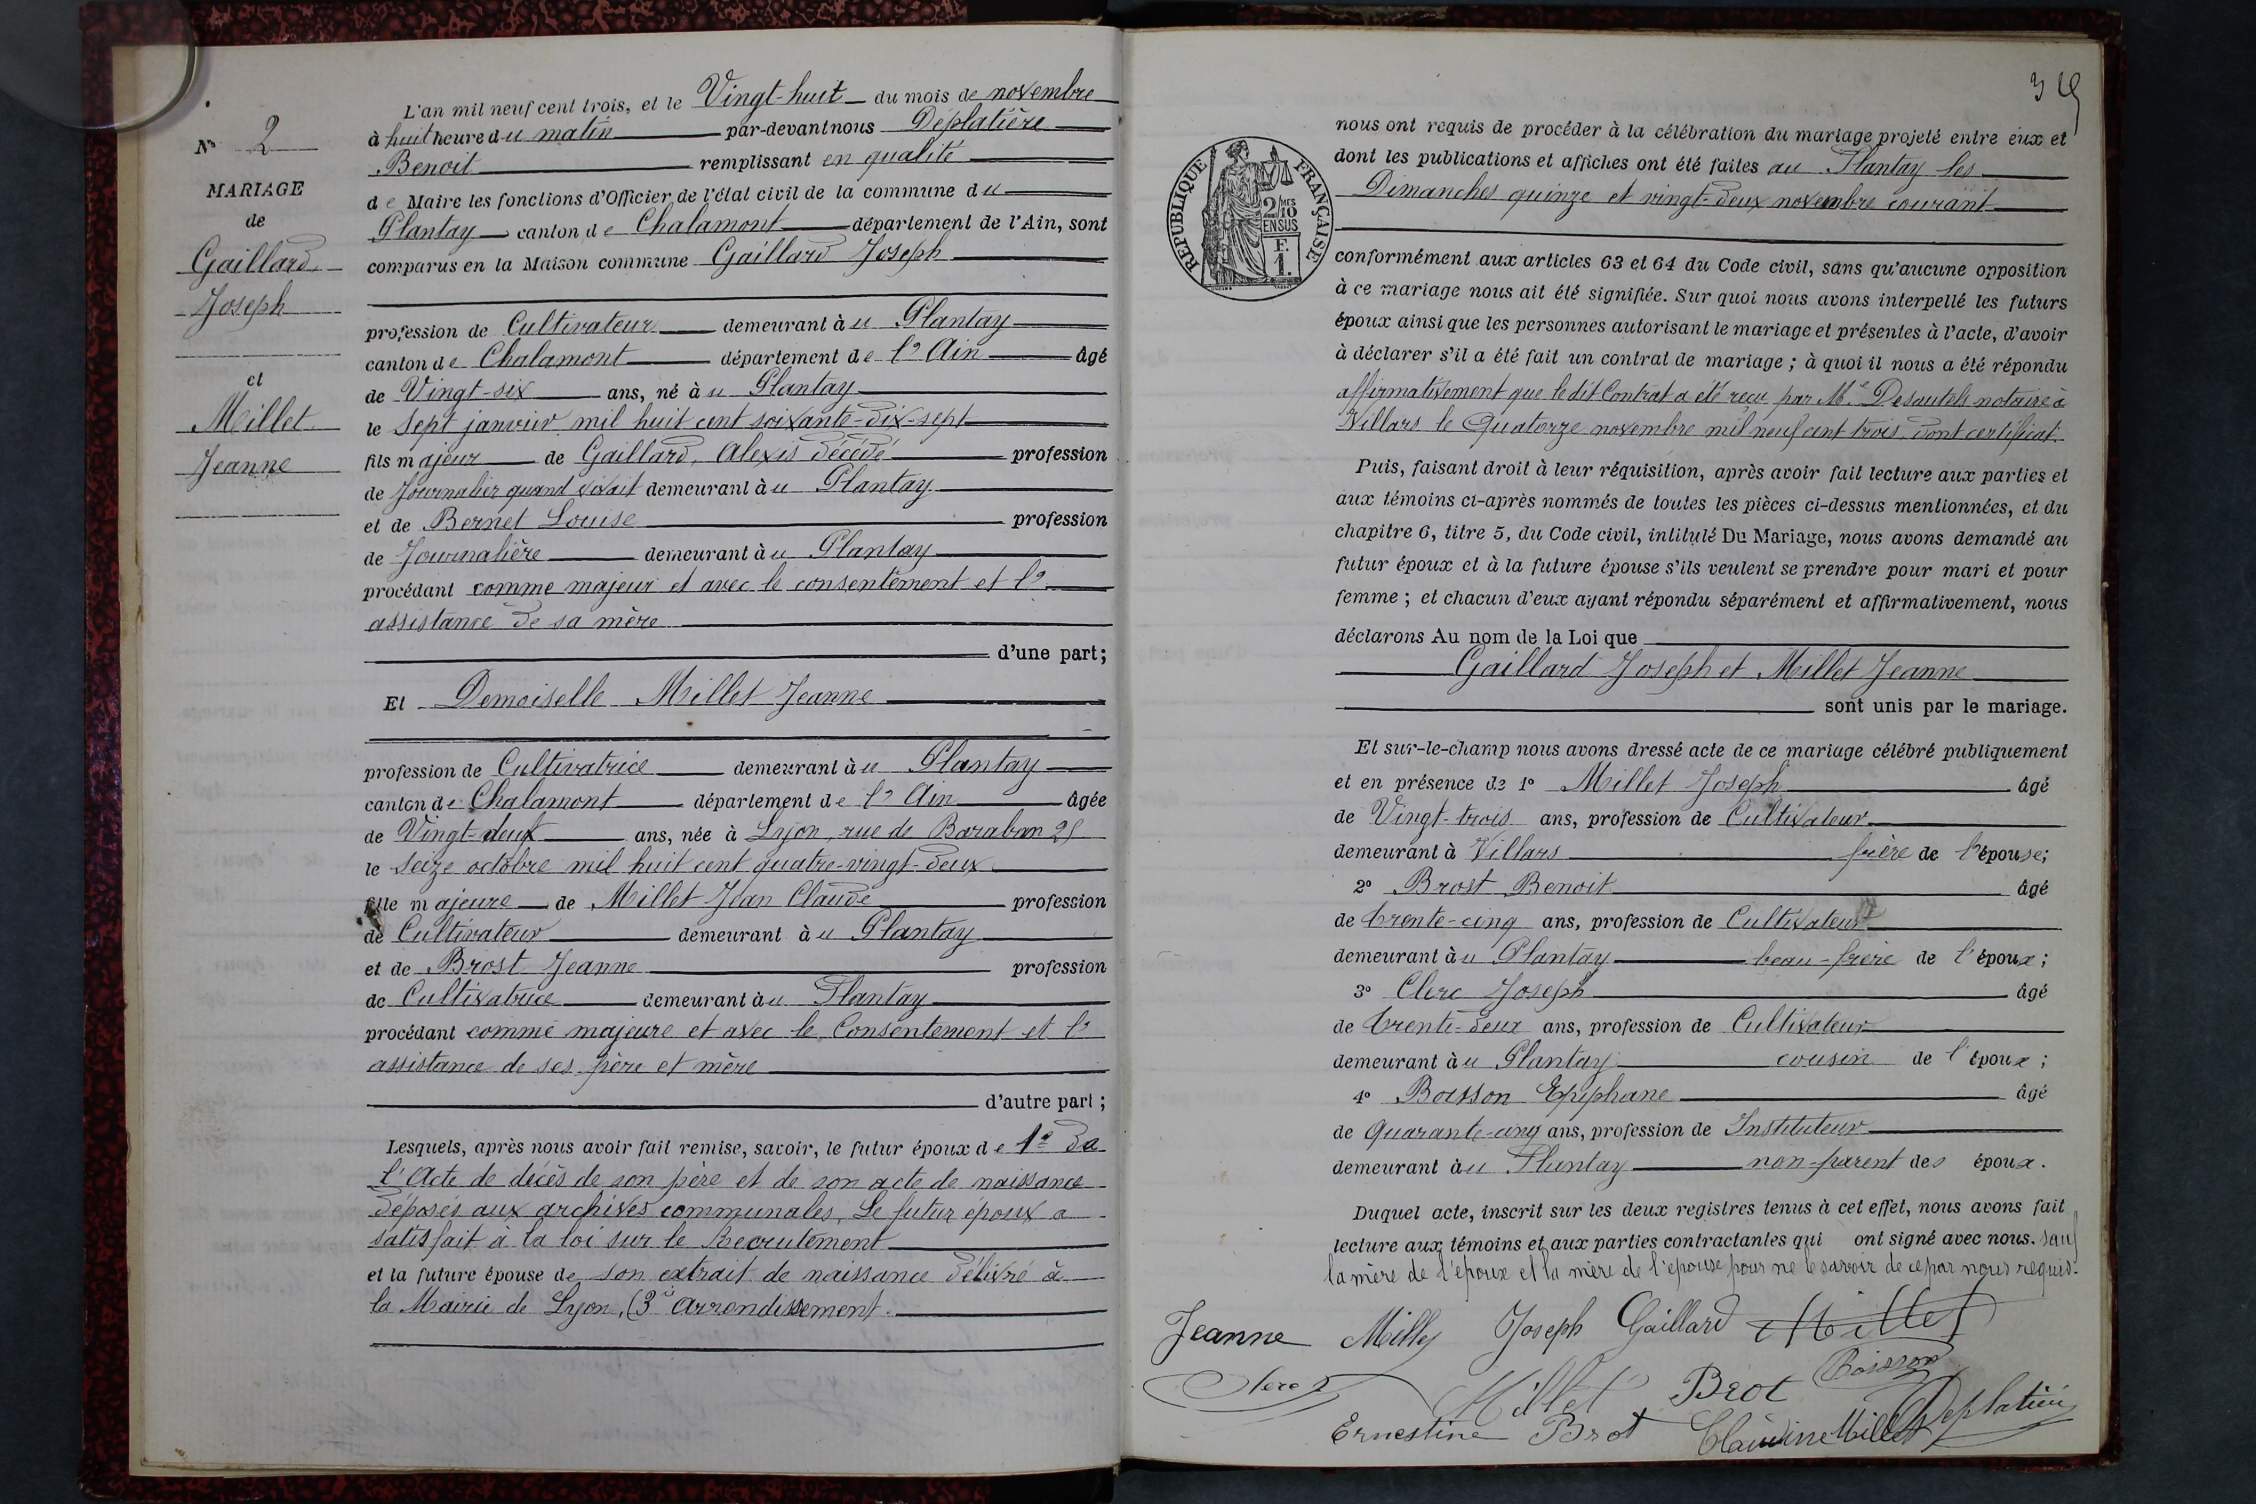 L'an mil neuf cent trois, et le Vingt-huit du mois de novembre
à huit heure du matin par-devant nous Déplatière
Benoit remplissant en qualité
de Maire les fonctions d'Officier de l'état civil de la commune du
Plantay canton de Chalamont département de l'Ain, sont
comparus en la Maison commune Gaillard Joseph
profession de Cultivateur demeurant à u Plantay
canton de Chalamont département de l'Ain âgé
de Vingt-six ans, né à u Plantay
le Sept janvier mil huit cent soixante-dix-sept
fils majeur de Gaillard, Alexis décédé profession
de Journalier quand vivait demeurant à u Plantay
et de Bernet Louise profession
de Journalière demeurant à u Plantay
procédant comme majeur et avec le consentement et l'
assistance de sa mère
d'une part;
Et Demoiselle Millet Jeanne
profession de Cultivatrice demeurant à u Plantay
canton de Chalamont département de l'Ain âgée
de Vingt-deux ans, née à Lyon, rue de Baraban
le seize octobre mil huit cent quatre-vingt-deux
fille majeure de Millet Jean Claude profession
de Cultivateur demeurant à u Plantay
et de Brost Jeanne profession
de Cultivatrice demeurant à u Plantay
procédant comme majeure et avec le Consentement et l'
assistance de ses père et mère
d'autre part;
Lesquels, après nous avoir fait remise, savoir, le futur époux de 1° de
l'Acte de décès de son père et de son acte de naissance
déposés aux archives communales, Le futur époux a
satisfait à la loi sur le Recrutement
et la future épouse de son extrait de naissance délivré à
la Mairie de Lyon, (3e arrondissement.
N° 2
MARIAGE
de
Gaillard
Joseph
et
Millet
Jeanne
REPUBLIQUE FRANÇAISE
2/10
EN SUS
F.
1.
nous ont requis de procéder à la célébration du mariage projeté entre eux et
dont les publications et affiches ont été faites au Plantay les
Dimanches quinze et vingt-deux novembre courant
conformément aux articles 63 et 64 du Code civil, sans qu'aucune opposition
à ce mariage nous ait été signifiée. Sur quoi nous avons interpellé les futurs
époux ainsi que les personnes autorisant le mariage et présentes à l'acte, d'avoir
à déclarer s'il a été fait un contrat de mariage; à quoi il nous a été répondu
affirmativement que le dit Contrat a été reçu par Me Desautels notaire à
Villars le Quatorze novembre mil neuf cent trois, dont certificat.
Puis, faisant droit à leur réquisition, après avoir fait lecture aux parties et
aux témoins ci-après nommés de toutes les pièces ci-dessus mentionnées, et du
chapitre 6, titre 5, du Code civil, intitulé Du Mariage, nous avons demandé au
futur époux et à la future épouse s'ils veulent se prendre pour mari et pour
femme; et chacun d'eux ayant répondu séparément et affirmativement, nous
déclarons Au nom de la Loi que
Gaillard Joseph et Millet Jeanne
sont unis par le mariage.
Et sur-le-champ nous avons dressé acte de ce mariage célébré publiquement
et en présence de 1° Millet Joseph âgé
de Vingt-trois ans, profession de Cultivateur
demeurant à Villars frère de l'épouse;
2° Brost Benoit âgé
de trente-cinq ans, profession de Cultivateur
demeurant à u Plantay beau-frère de l'époux;
3° Clerc Joseph âgé
de trente-deux ans, profession de Cultivateur
demeurant à u Plantay cousin de l'époux;
4° Boisson Epiphane âgé
de Quarante-cinq ans, profession de Instituteur
demeurant à u Plantay non-parent des époux.
Duquel acte, inscrit sur les deux registres tenus à cet effet, nous avons fait
lecture aux témoins et aux parties contractantes qui ont signé avec nous. sauf
la mère de l'époux et la mère de l'épouse pour ne le savoir de ce par nous requis.
Jeanne Millet Joseph Gaillard Millet
Clerc J Millet Brot Boisson
Ernestine Brot Claudine Millet Déplatière